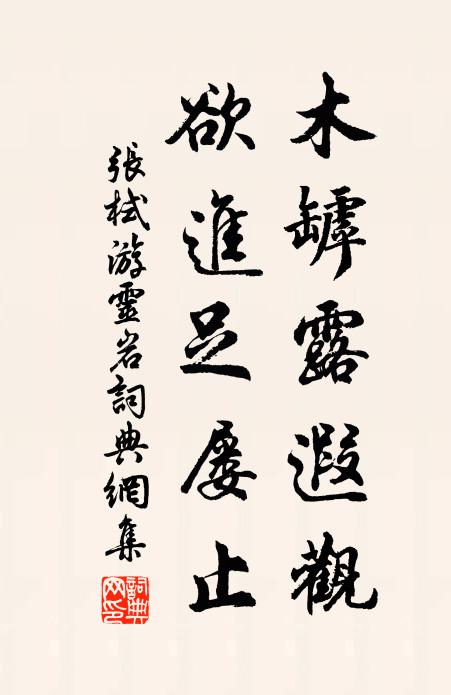 木罅露遐觀
欲進足屢止
張栻游靈岩詞典網集
詞典網印